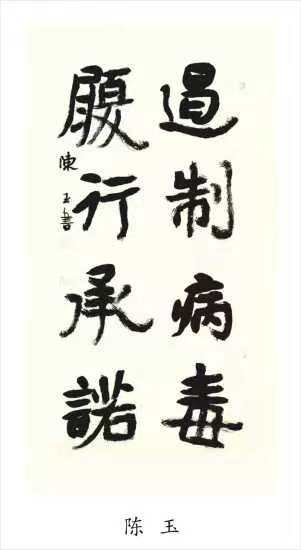 遏制病毒
履行承諾
陳玉書
陈玉